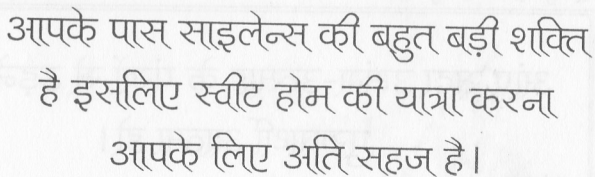 आपके पास साइलेन्स की बहुत बड़ी शक्ति
है इसलिए स्वीट होम की यात्रा करना
आपके लिए अति सहज है।